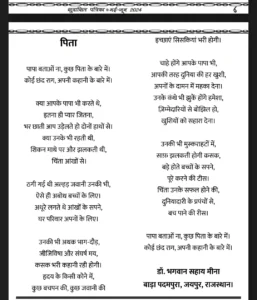 खुशबित पत्रिका • मई-जून 2024
6
पिता
पापा बताओं ना, कुछ पिता के बारे में।
कोई छंद राग, अपनी कहानी के बारे में।
क्या आपके पापा भी करते थे,
इतना ही प्यार जितना,
भर छाती आप उड़ेलते हो दोनों हाथों से।
क्या उनके भी रहती थी,
शिकन माथे पर और झलकती थी,
चिंता आंखों से।
ठगी गई थी अल्हड़ जवानी उनकी भी,
ऐसे ही अबोध बच्चों के लिए।
अधूरे लगते थे आंखों के सपने,
घर परिवार अपनों के लिए।
उनकी भी अथक भाग-दौड़,
जीजिविषा और संघर्ष मय,
कसक भरी कहानी रही होगी।
हृदय के किसी कोने में,
कुछ बचपन की, कुछ जवानी की
इच्छाएं सिसकियां भरी होगी।
चाहे होंगे आपके पापा भी,
आपकी तरह दुनिया की हर खुशी,
अपनों के दामन में महका देना।
उनके कंधे भी झुकें होंगे हमेशा,
ज़िम्मेदारियों से बोझिल हो,
खुशियों को सहारा देना।
उनकी भी मुस्कराहटों में,
साफ़ झलकती होगी कसक,
बड़े होते बच्चों के सपने,
पूरे करने की टीस।
चिंता उनके सफल होने की,
दुनियादारी के प्रपंचों से,
बच पाने की रीस।
पापा बताओं ना, कुछ पिता के बारे में।
कोई छंद राग, अपनी कहानी के बारे में।
डॉ. भगवान सहाय मीना
बाड़ा पदमपुरा, जयपुर, राजस्थान।